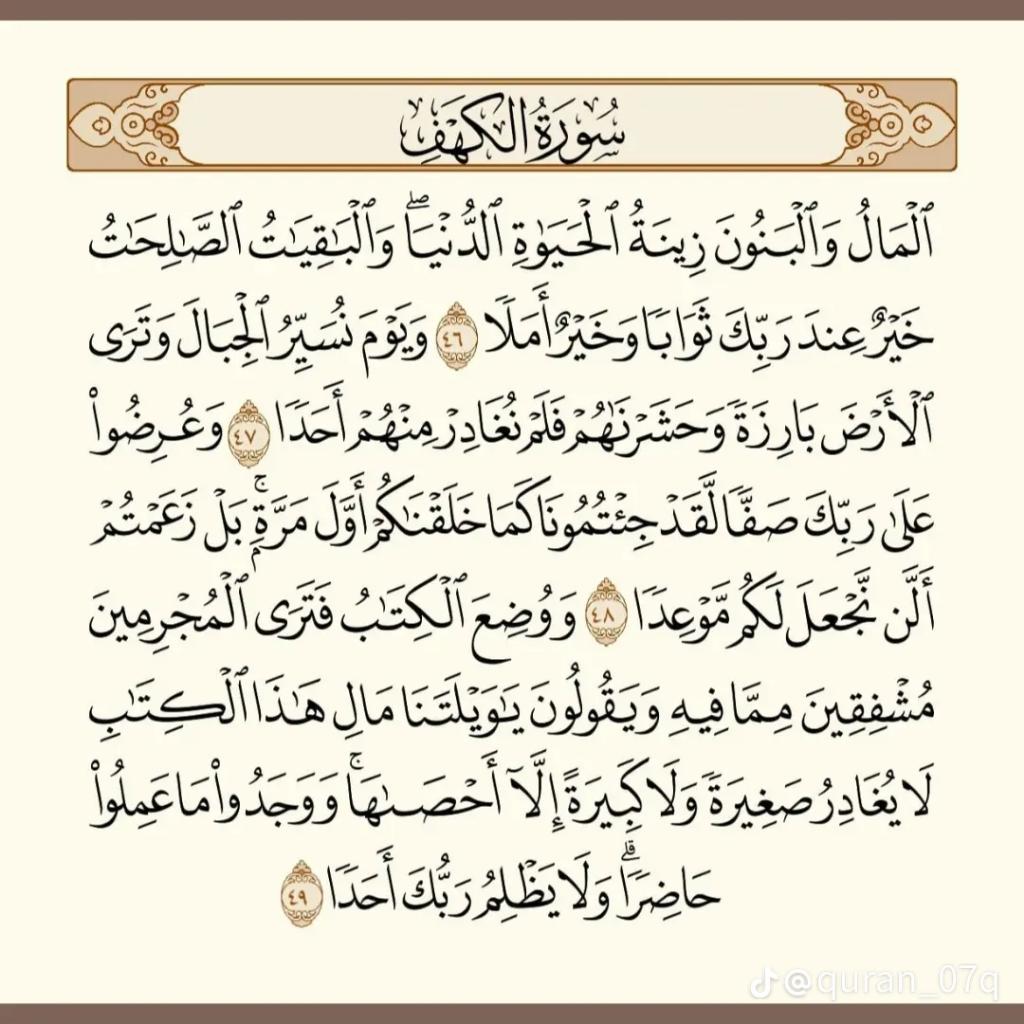 سُورَةُ الْكَهْفِ
ٱلْمَالُ وَٱلْبَنُونَ زِينَةُ ٱلْحَيَوٰةِ ٱلدُّنْيَاۖ وَٱلْبَٰقِيَٰتُ ٱلصَّٰلِحَٰتُ
خَيْرٌ عِندَ رَبِّكَ ثَوَابًا وَخَيْرٌ أَمَلًا ٤٦ وَيَوْمَ نُسَيِّرُ ٱلْجِبَالَ وَتَرَى
ٱلْأَرْضَ بَارِزَةً وَحَشَرْنَٰهُمْ فَلَمْ نُغَادِرْ مِنْهُمْ أَحَدًا ٤٧ وَعُرِضُوا۟
عَلَىٰ رَبِّكَ صَفًّا لَّقَدْ جِئْتُمُونَا كَمَا خَلَقْنَٰكُمْ أَوَّلَ مَرَّةٍۭۚ بَلْ زَعَمْتُمْ
أَلَّن نَّجْعَلَ لَكُم مَّوْعِدًا ٤٨ وَوُضِعَ ٱلْكِتَٰبُ فَتَرَى ٱلْمُجْرِمِينَ
مُشْفِقِينَ مِمَّا فِيهِ وَيَقُولُونَ يَٰوَيْلَتَنَا مَالِ هَٰذَا ٱلْكِتَٰبِ
لَا يُغَادِرُ صَغِيرَةً وَلَا كَبِيرَةً إِلَّآ أَحْصَىٰهَاۚ وَوَجَدُوا۟ مَا عَمِلُوا۟
حَاضِرًاۗ وَلَا يَظْلِمُ رَبُّكَ أَحَدًا ٤٩
@quran_07q